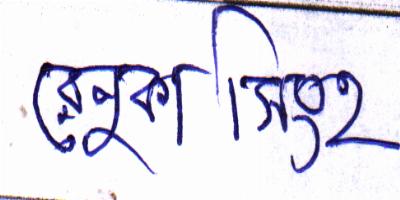 রেনুকা সিংহ